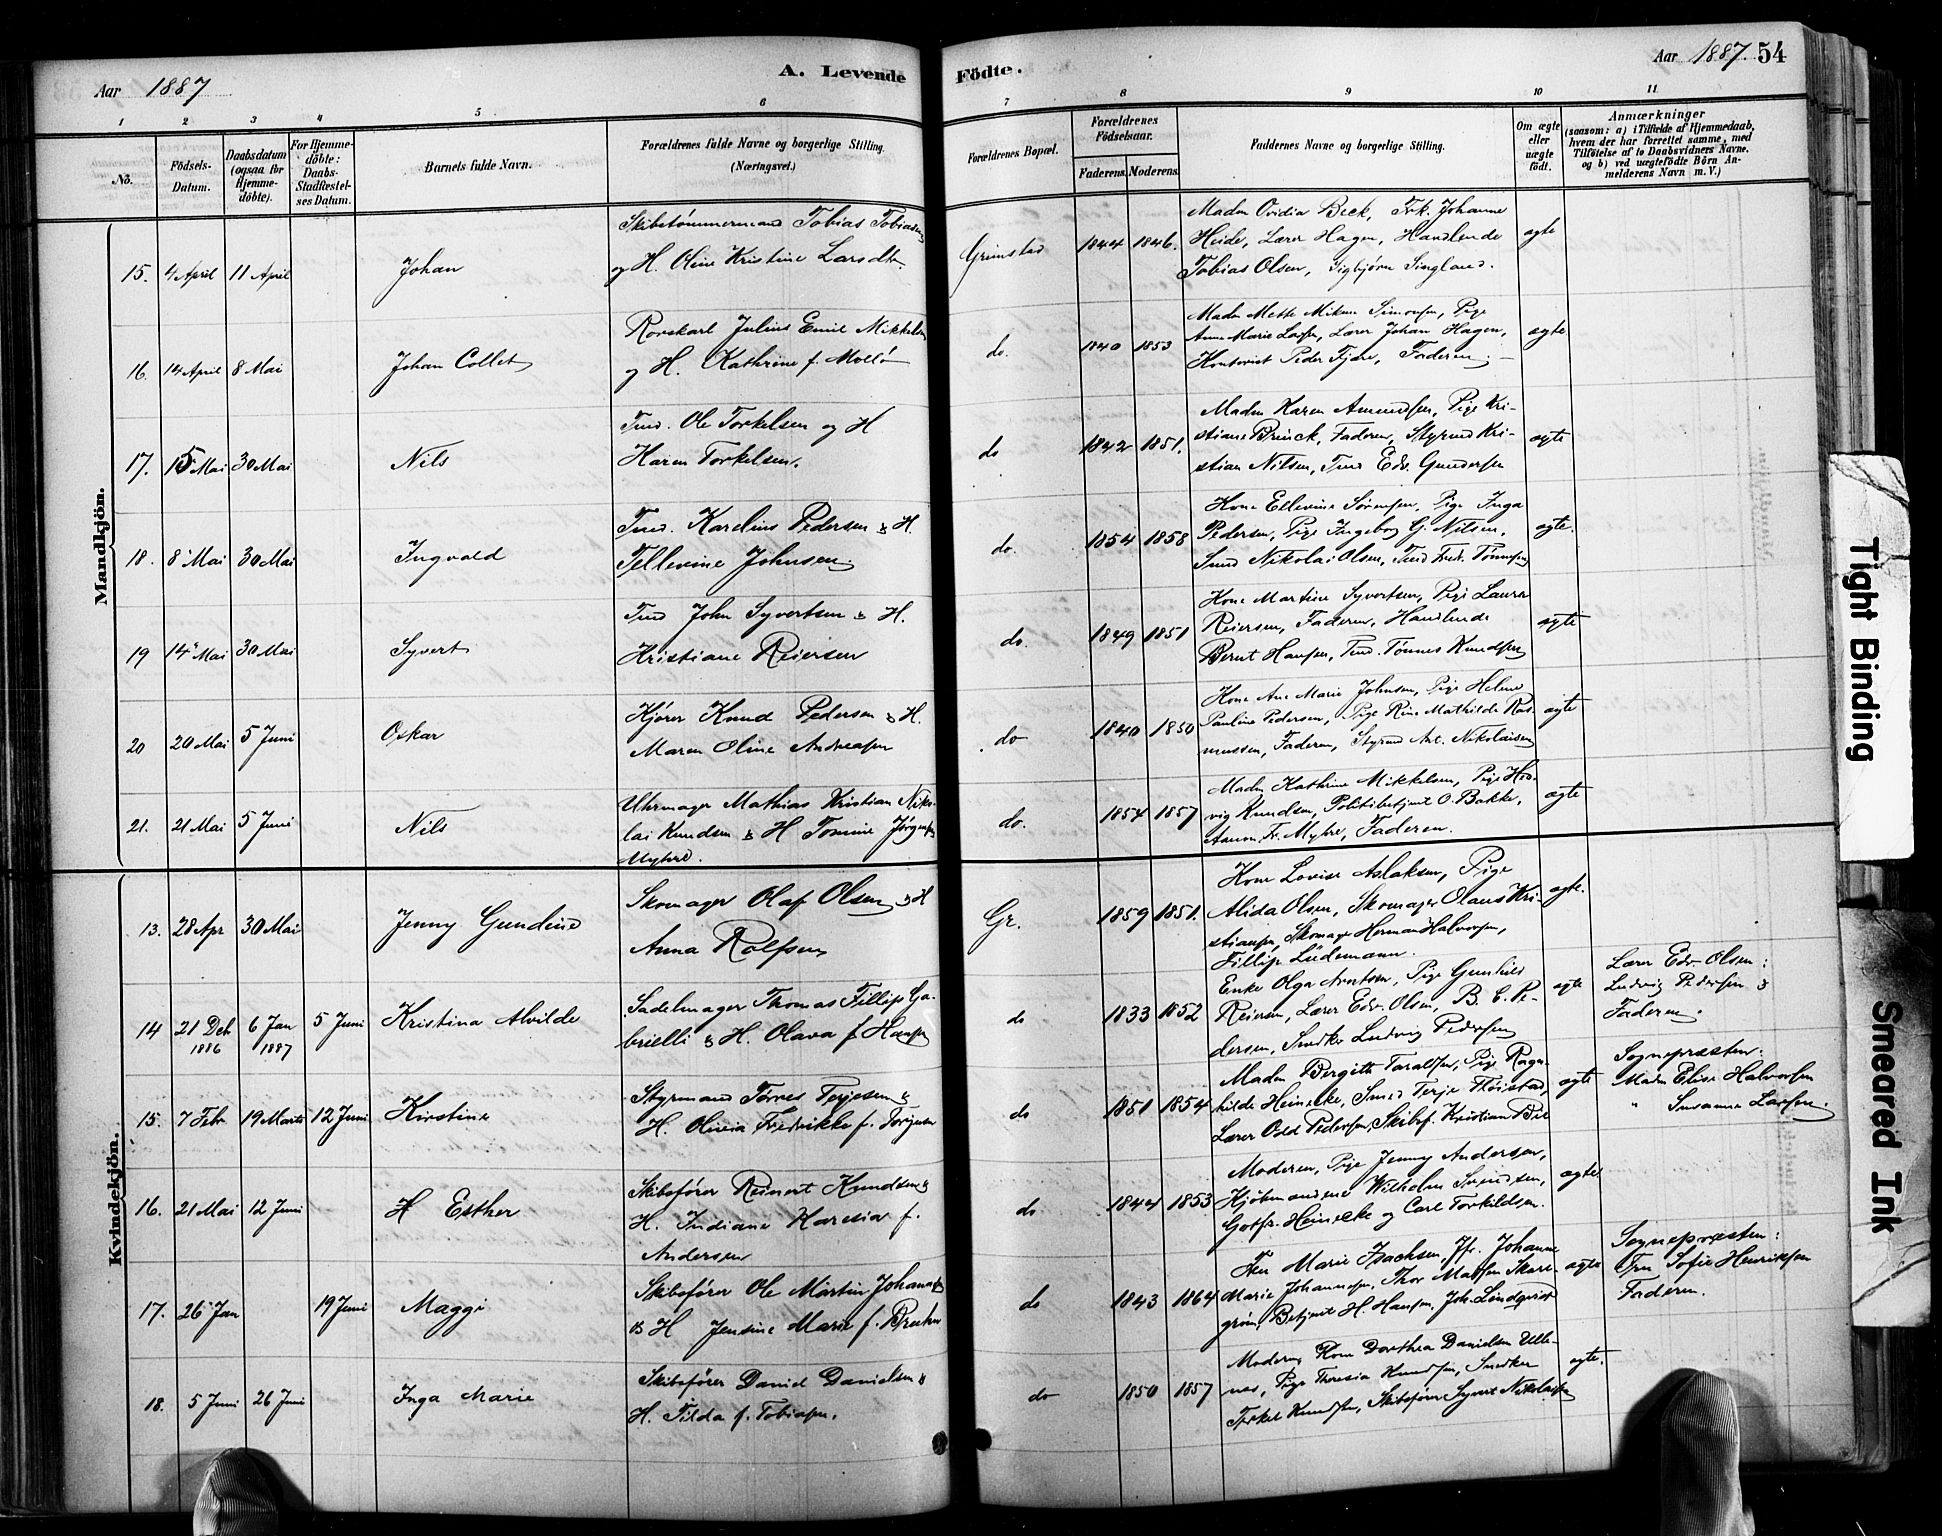 Aar 1887
A. Levende
1 2 3 4 5 6
No.
Födsels-
Datum.
Daabsdatum
(ogsaa for
Hjemme-
döbte).
For Hjemme-
döbte:
Daabs-
Stadfæstel-
ses Datum.
Barnets fulde Navn.
Forældrenes fulde Navne og borgerlige Stilling.
(Næringsvei.)
Mandkjön.
Skibstømmermand Tobias Tobiasen
15. 4 April 11 April Johan og H. Oline Kristine Larsdtr.
Rorskarl Julius Emil Mikkelsen
16. 14 April 8 Mai Johan Collet og H. Kathrine f. Mollø
Tmd. Ole Torkelsen og H
17. 15 Mai 30 Mai Nils Karen Torkelsen.
Tmd. Karelius Pedersen & H.
18. 8 Mai 30 Mai Ingvald Tellevine Johnsen.
Tmd John Syvertsen & H.
19 14 Mai 30 Mai Syvert Kristiane Reiersen
Kjører Knud Pedersen & H.
20 20 Mai 5 Juni Oskar Maren Oline Andreasen
Uhrmager Mathias Kristian Niko-
21. 21 Mai 5 Juni Nils lai Knudsen & H Tomine Jørgensen
Myhre.
Kvindekjön.
Skomager Olaf Olsen & H
13. 28 Apr 30 Mai Jenny Gundine Anna Rolfsen
Sadelmager Thomas Fillip Ga-
14 21 Deb 1886 6 Jan 1887 5 Juni Kristina Alvilde brielli & H. Olava f. Hansen
Styrmand Tørres Terjesen &
15. 7 Febr 19 Marts 12 Juni Kirstine H. Olivia Fredrikke f. Torjusen
Skibsfører Reinert Knudsen &
16. 21 Mai 12 Juni H Esther H. Indiane Karesia f.
Andersen
Skibsfører Ole Martin Johannesen
17. 26 Jan 19 Juni Maggi & H Jensine Marie f.
Skibsfører Daniel Danielsen &
18. 5 Juni 26 Juni Inga Marie H. Tilda f. Tobiasen.
Födte.
Aar 1887. 54
7 8 9 10 11
Forældrenes Bopæl.
Forældrenes
Födselsaar.
Faderens. Moderens.
Faddernes Navne og borgerlige Stilling.
Om ægte
eller
uægte
födt.
Anmærkninger
(saasom: a) i Tilfælde af Hjemmedaab,
hvem der har forrettet samme, med
Tilföielse af to Daabsvidners Navne.
og b) ved uægtefödte Börn An-
melderens Navn m. V.)
Madm Ovidia Beck, Frk. Johanne
Grimstad 1844 1846. Heide, Lærer Hagen, Handlende ægte
Tobias Olsen, Sigbjørn Singland.
Madm Mette Simonsen, Pige
do. 1840 1853 Anne Marie Larsen, Lærer Johan Hagen, ægte
Kontorist Peder Fjære, Faderen.
Madm Karen Amundsen, Pige Kri-
do 1842 1851. stiane Brinck, Faderen, Styrmd Kri- ægte
stian Nilsen, Tmd Edv. Gundersen
Kone Ellevine Sørensen, Pige Inga
do. 1854 1858 Pedersen, Pige Ingeborg G. Nilsen, ægte.
Smed Nikolai Olsen, Tmd Fredr. Tønnesen
Kone Martine Syvertsen, Pige Laura
do. 1849 1851 Reiersen, Faderen, Handlende ægte
Bernt Hansen, Tmd. Tønnes Knudsen
Kone Ane Marie Johnsen, Pige Helene
do 1840 1850 Pauline Pedersen, Pige Rine Mathilde Ras- ægte
mussen, Faderen, Styrmd Ant. Nikolaisen
Madm Kathrine Mikkelsen, Pige Hed-
do. 1854 1857 vig Knudsen, Politibetjent O. Bakke, ægte
Fr. Myhre, Faderen.
Kone Lovise Aslaksen, Pige
Gr. 1859 1851. Alida Olsen, Skomager Olaus Kri- ægte.
stiansen, Skomager Herman Halvorsen,
Fillip Lüdemann.
Enke Olga Arntsen, Pige Gunhild
do 1833 1852 Reiersen, Lærer Edv. Olsen, B. C. Pe- ægte
dersen, Snedker Ludvig Pedersen
Lærer Edv Olsen:
Ludvig Pedersen &
Faderen.
Madm Bergitte Taraldsen, Pige Ragn-
do 1851 1854 hilde Heinecke, Smed Terje Fløistad, ægte
Lærer Odd Pedersen, Skibsf. Kristian
Sognepræsten:
Madm Elise Halvorsen
" Susanne Larsen.
Moderen, Pige Jenny Andersen,
do 1844 1853 Kjøbmændene Wilhelm Svendsen, ægte
Gotfr. Heinecke og Carl Torkildsen.
Fru Marie Isachsen, Jfr. Johanne
do 1843 1864 Marie Johannesen, Thor Madsen Skare- ægte
grøm, Betjent H. Hansen, Joh. Lindqvist
Sognepræsten:
Fru Sofie Henriksen
Faderen.
Moderen, Kone Dorthea Danielsen Ulle-
do 1850 1857 næs, Pige Theresia Knudsen, Snedker ægte.
Terkel Knudsen, Skibsfører Syvert Nikolaisen
Tight Binding
Smeared Ink